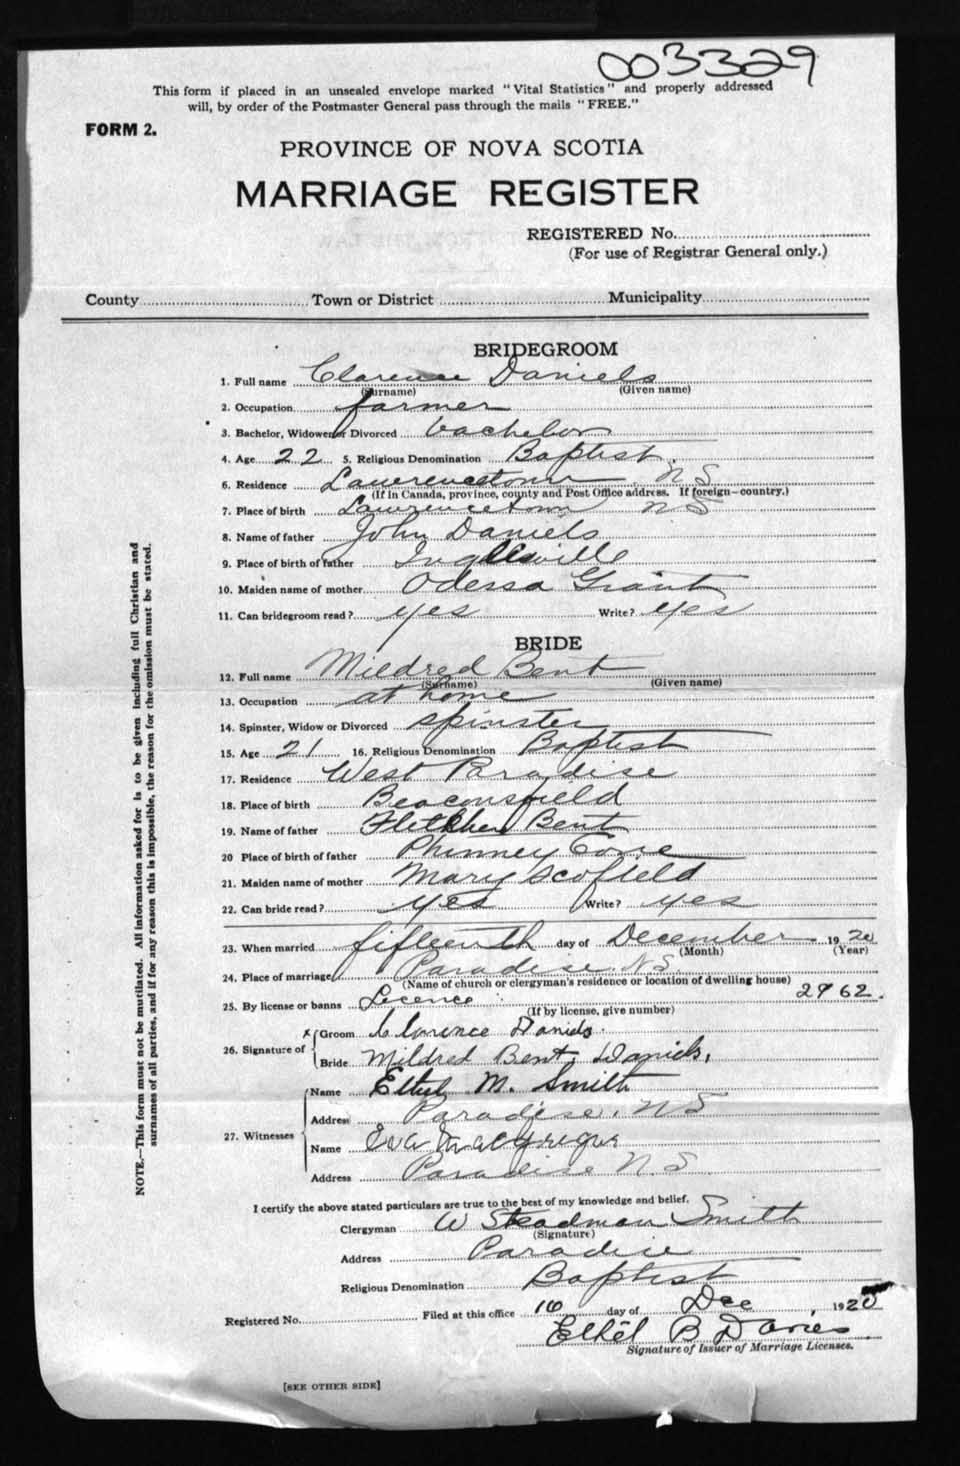 003329
This form if placed in an unsealed envelope marked "Vital Statistics" and properly addressed
will, by order of the Postmaster General pass through the mails "FREE."
FORM 2.
PROVINCE OF NOVA SCOTIA
MARRIAGE REGISTER
REGISTERED No.
(For use of Registrar General only.)
County Town or District Municipality
BRIDEGROOM
1. Full name Clarence Daniels
(Surname) (Given name)
2. Occupation farmer
3. Bachelor, Widower or Divorced bachelor
4. Age 22 5. Religious Denomination Baptist.
6. Residence Lawrencetown NS
(If in Canada, province, county and Post Office address. If foreign—country.)
7. Place of birth Lawrencetown NS
8. Name of father John Daniels
9. Place of birth of father Inglisville
10. Maiden name of mother Odessa Grant
11. Can bridegroom read? yes Write? yes
BRIDE
12. Full name Mildred Bent
(Surname) (Given name)
13. Occupation at home
14. Spinster, Widow or Divorced spinster
15. Age 21 16. Religious Denomination Baptist
17. Residence West Paradise
18. Place of birth Beaconsfield
19. Name of father Fletcher Bent
20 Place of birth of father Phinney Cove
21. Maiden name of mother Mary Scofield
22. Can bride read? yes Write? yes
23. When married fifteenth day of December 1920
(Month) (Year)
24. Place of marriage Paradise NS
(Name of church or clergyman's residence or location of dwelling house)
25. By license or banns Licence 2962.
(If by license, give number)
26. Signature of
x Groom Clarence Daniels.
Bride Mildred Bent Daniels.
27. Witnesses
Name Ethel M. Smith
Address Paradise, NS
Name Eva MacGregor
Address Paradise N.S
I certify the above stated particulars are true to the best of my knowledge and belief.
Clergyman W Steadman Smith
(Signature)
Address Paradise
Religious Denomination Baptist
Registered No. Filed at this office 16 day of Dec 1920
Ethel B Davies
Signature of Issuer of Marriage Licenses.
[SEE OTHER SIDE]
NOTE.—This form must not be mutilated. All information asked for is to be given including full Christian and
surnames of all parties, and if for any reason this is impossible, the reason for the omission must be stated.